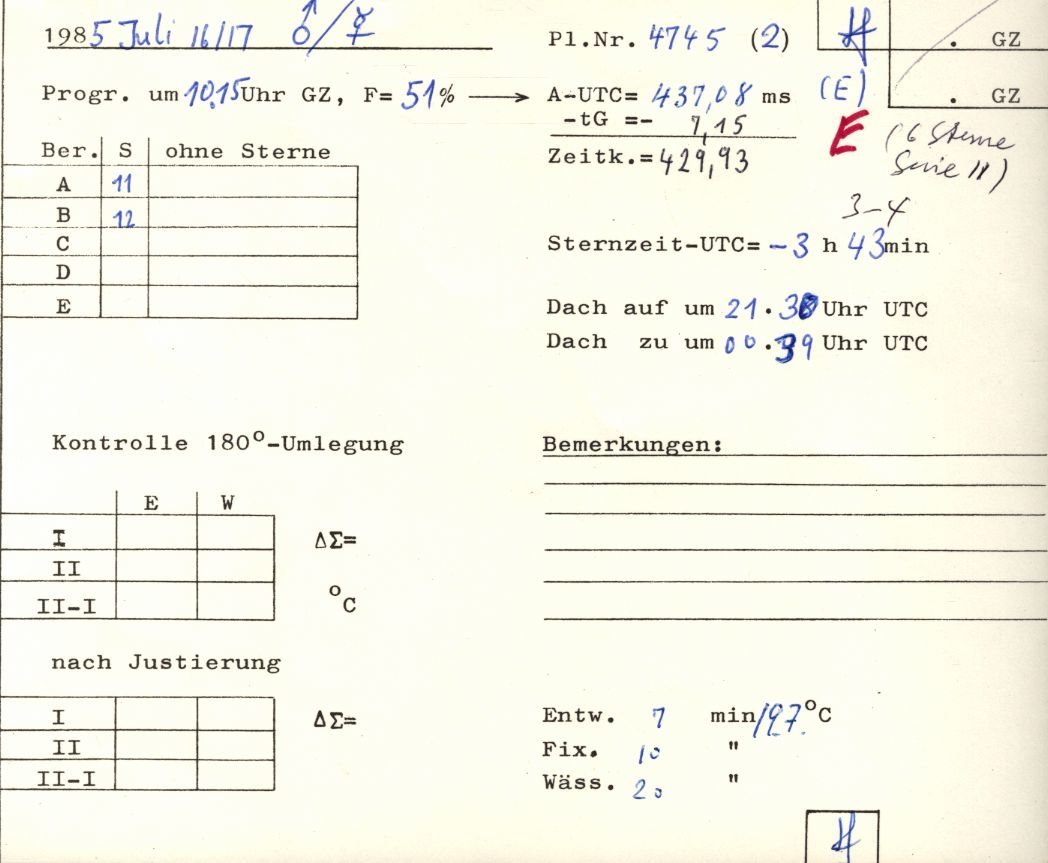 1985 Juli 16/17 ♂/☿
Pl.Nr. 4745 (2)
. GZ
Progr. um 10.15 Uhr GZ, F= 51% → A-UTC= 437,08 ms (E)
. GZ
-tG =- 7,15
E (6 Sterne
Serie 11)
Zeitk.=429,93
Ber. S ohne Sterne
A 11
B 12
C
D
E
3-4
Sternzeit-UTC= -3 h 43min
Dach auf um 21.38 Uhr UTC
Dach zu um 00.39 Uhr UTC
Kontrolle 180°-Umlegung
Bemerkungen:
E W
I ΔΣ=
II
II-I °C
nach Justierung
I ΔΣ=
II
II-I
Entw. 7 min/19,7°C
Fix. 10 "
Wäss. 20 "